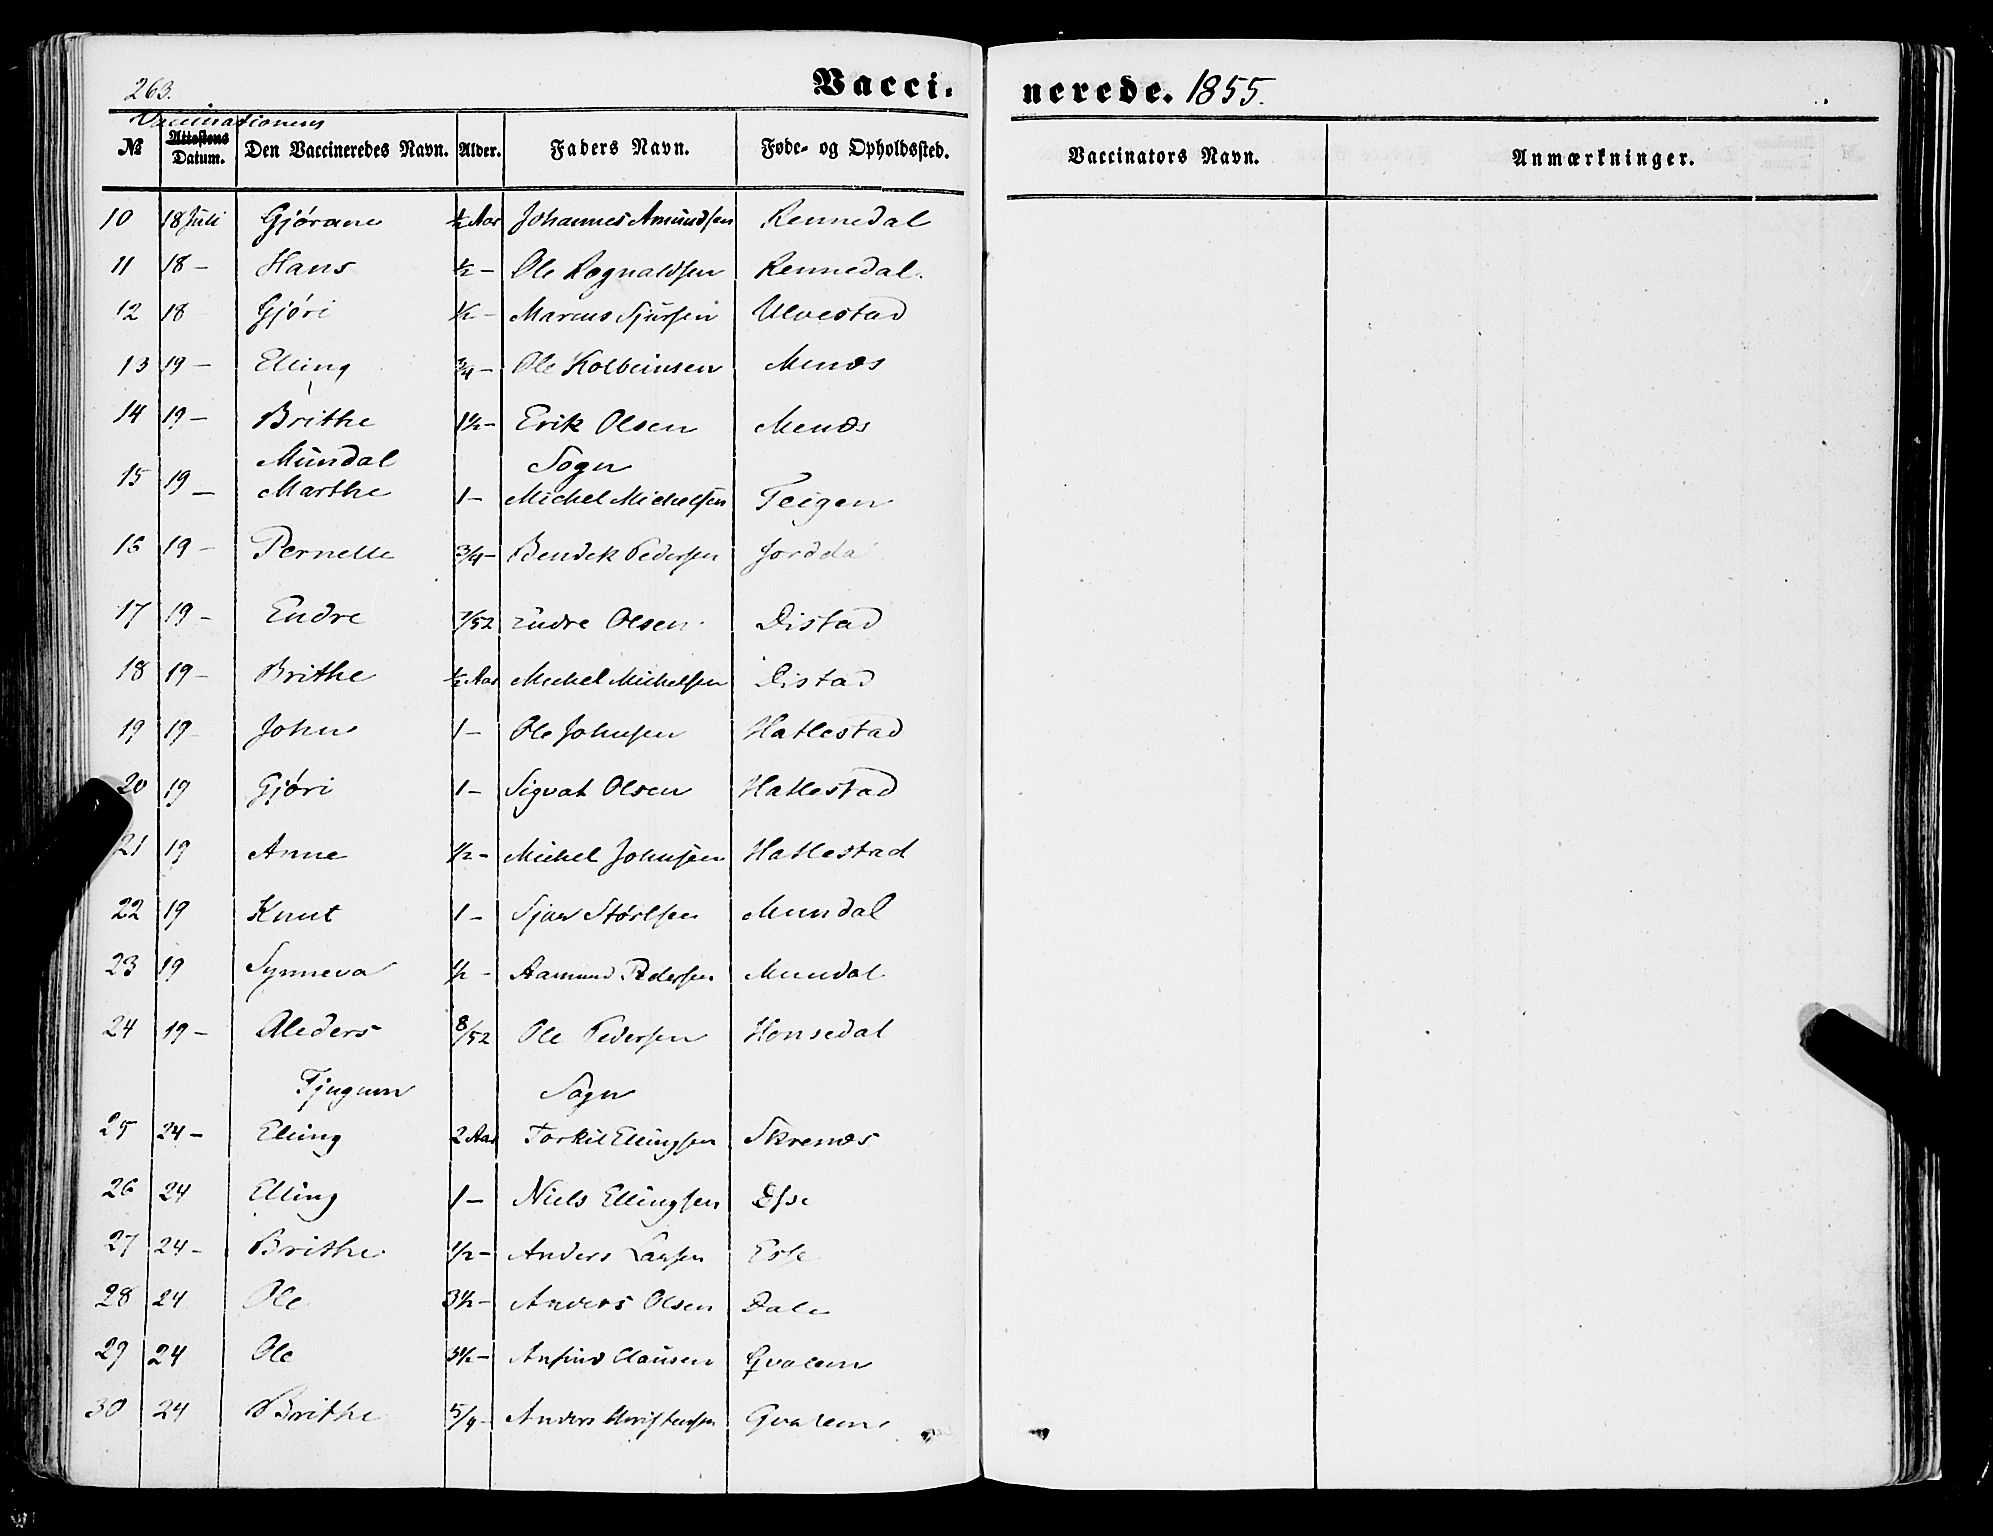 263.
Vacci-
nerede. 1855.
Vaccinationens
№ Attestens Datum. Den Vaccineredes Navn. Alder. Faders Navn. Føde- og Opholdssted. Vaccinators Navn. Anmærkninger.
10 18 Juli Gjørane ½ Aar Johannes Amundsen Rennedal
11 18 – Hans ½ – Ole Rognaldsen Rennedal.
12 18 Gjøri ½ – Marcus Sjursen Ulvestad
13 19 – Elling ¾ – Ole Kolbeinsen Menæs
14 19 – Brithe 1½ – Erik Olsen Menæs
Mundal Sogn
15 19 – Marthe 1 – Michel Michelsen Teigen
16 19 – Pernelle 3/4 – Bendek Pedersen Jordda
17 19 – Endre 7/52 Endre Olsen Distad
18 19 – Brithe ½ Aar Michel Michelsen Distad
19 19 John 1 – Ole Johnsen Hatlestad
20 19 Gjøri 1 – Sigvat Olsen Hatlestad
21 19 Anne ½ – Michel Johnsen Hatlestad
22 19 Knut 1 – Sjur Mundal
23 19 Synneva ½ – Aamund Pedersen Mundal
24 19 – Aleders 8/52 Ole Pedersen Honsedal
Tjugum Sogn
25 24 – Elling 2 Aar Torkil Ellingsen Skrenæs
26 24 Elling 1 – Niels Ellingsen Esse
27 24 – Brithe ½ – Anders Larsen Esse
28 24 Ole 3½ – Anders Olsen Dale
29 24 Ole 3½ – Anfind Clausen Qvalem
30 24 Brithe 5/4 – Anders Christensen Qvalem